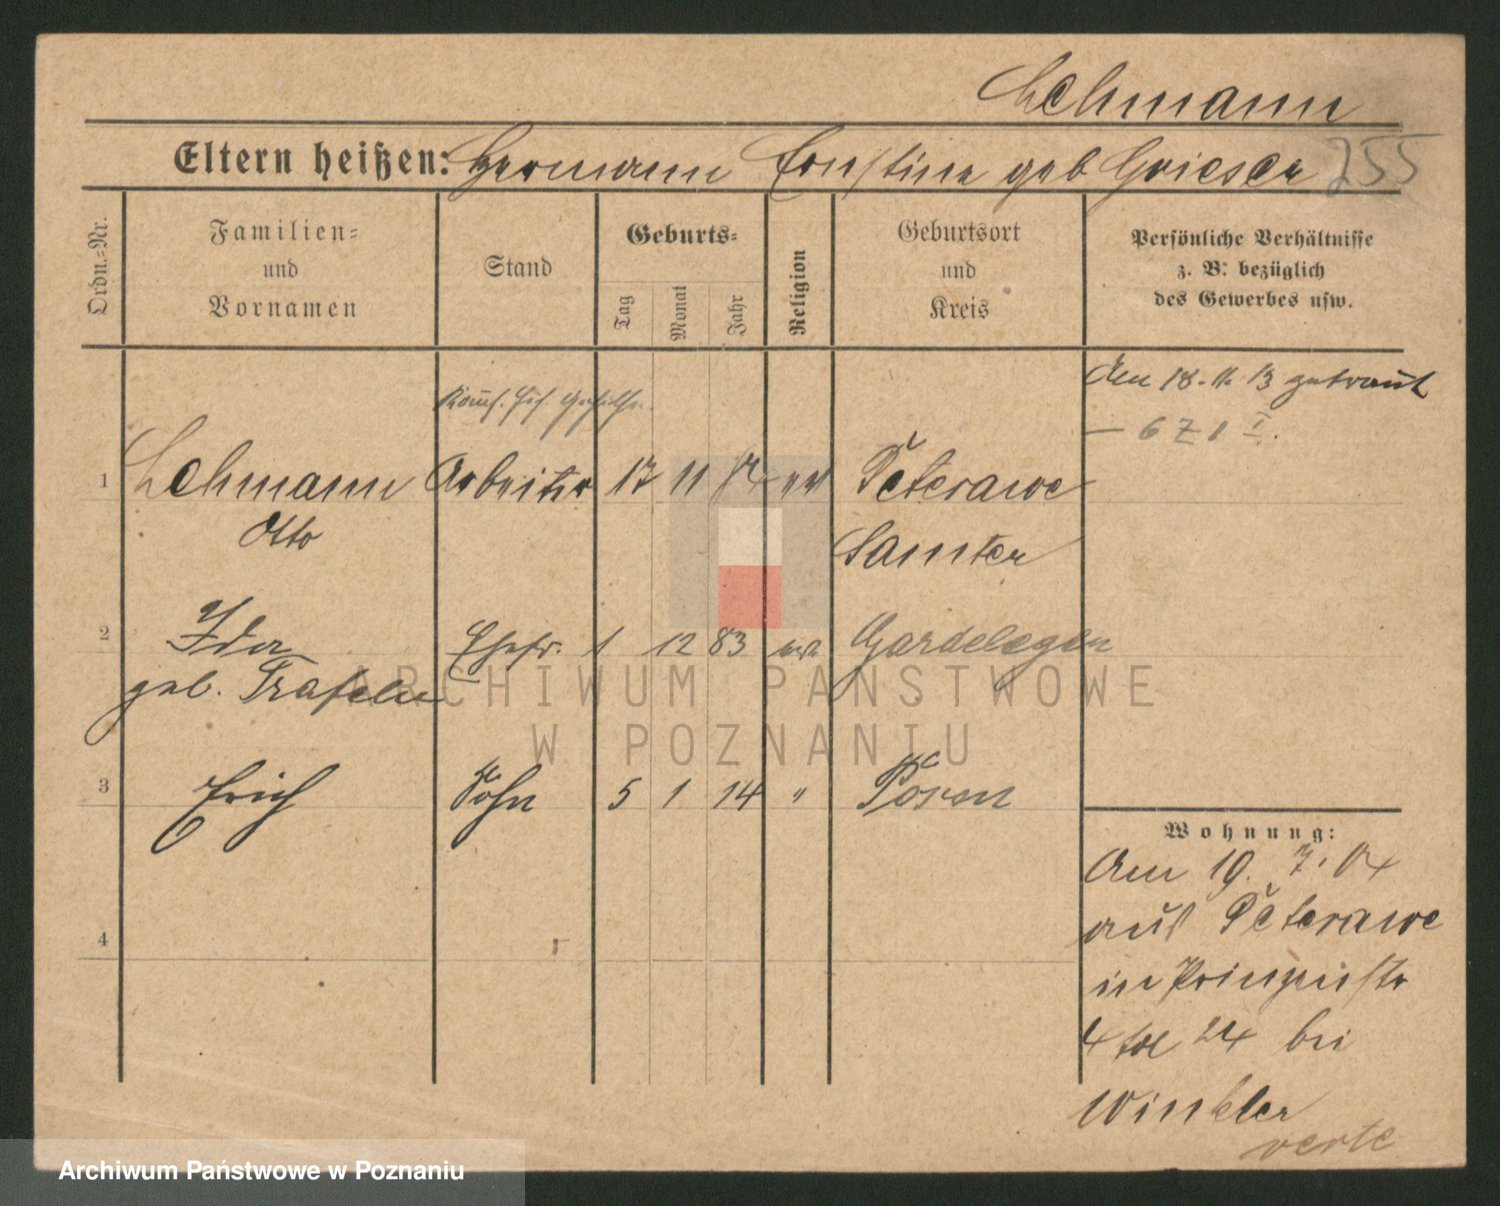 Lehmann
Eltern heißen: Hermann Ernstine geb Grieser
255
Ordn.-Nr.
Familien-
und
Vornamen
Stand
Geburts-
Tag
Monat
Jahr
Religion
Geburtsort
und
Kreis
Persönliche Verhältnisse
z. B. bezüglich
des Gewerbes usw.
Am 18. 11. 13 getraut
1 Lehmann Arbeiter 17 11 ev Peterawe
Otto Samter
2 Ida Ehefr. 1 12 83 ev. Gardelegen
geb.
3 Erich Sohn 5 1 14 " Posen
4
Wohnung:
Am 19. 7. 04
aus Peterawe
in Prinzenstr
4 24 bei
Winkler
verte
ARCHIWUM PAŃSTWOWE
W POZNANIU
Archiwum Państwowe w Poznaniu